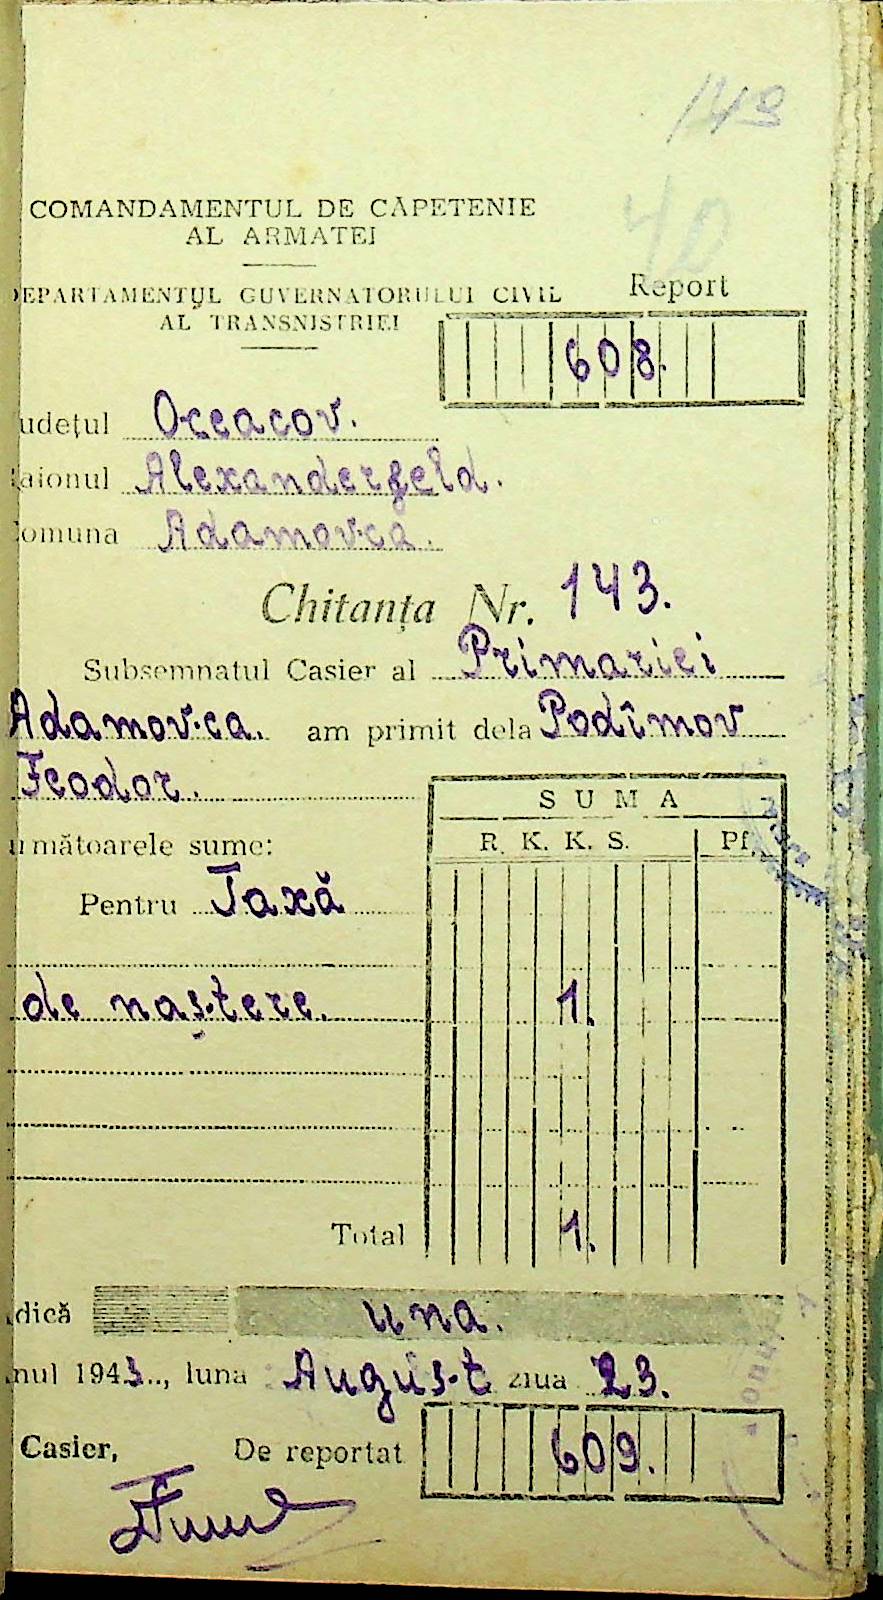 149
40
COMANDAMENTUL DE CĂPETENIE
AL ARMATEI
DEPARTAMENTUL GUVERNATORULUI CIVIL
AL TRANSNISTRIEI
Report
608.
udețul Oceacov.
aionul Alexanderfeld.
omuna Adamovca.
Chitanța Nr. 143.
Subsemnatul Casier al Primariei
Adamovca. am primit dela Podîmov
Feodor.
SUMA
următoarele sume:
R. K. K. S. Pf.
Pentru Taxă
de naștere. 1.
Total 1.
dică una.
nul 1943.., luna August ziua 23.
Casier, De reportat 609.